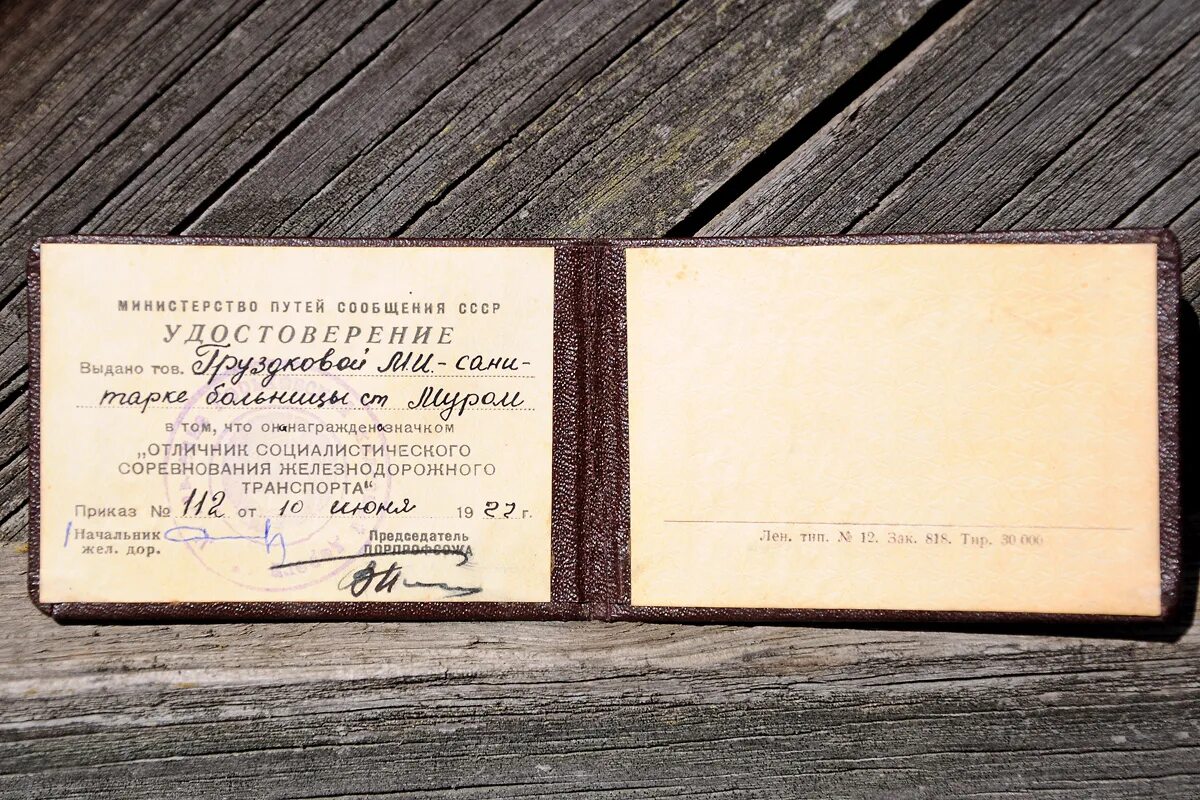 МИНИСТЕРСТВО ПУТЕЙ СООБЩЕНИЯ СССР
УДОСТОВЕРЕНИЕ
Выдано тов. Груздковой М.И. - сани-
тарке больницы ст Муром
в том, что она награждена значком
„ОТЛИЧНИК СОЦИАЛИСТИЧЕСКОГО
СОРЕВНОВАНИЯ ЖЕЛЕЗНОДОРОЖНОГО
ТРАНСПОРТА“
Приказ № 112 от 10 июня 1977 г.
Начальник
жел. дор.
Председатель
ДОРПРОФСОЖА
Лен. тип. № 12. Зак. 818. Тир. 30 000